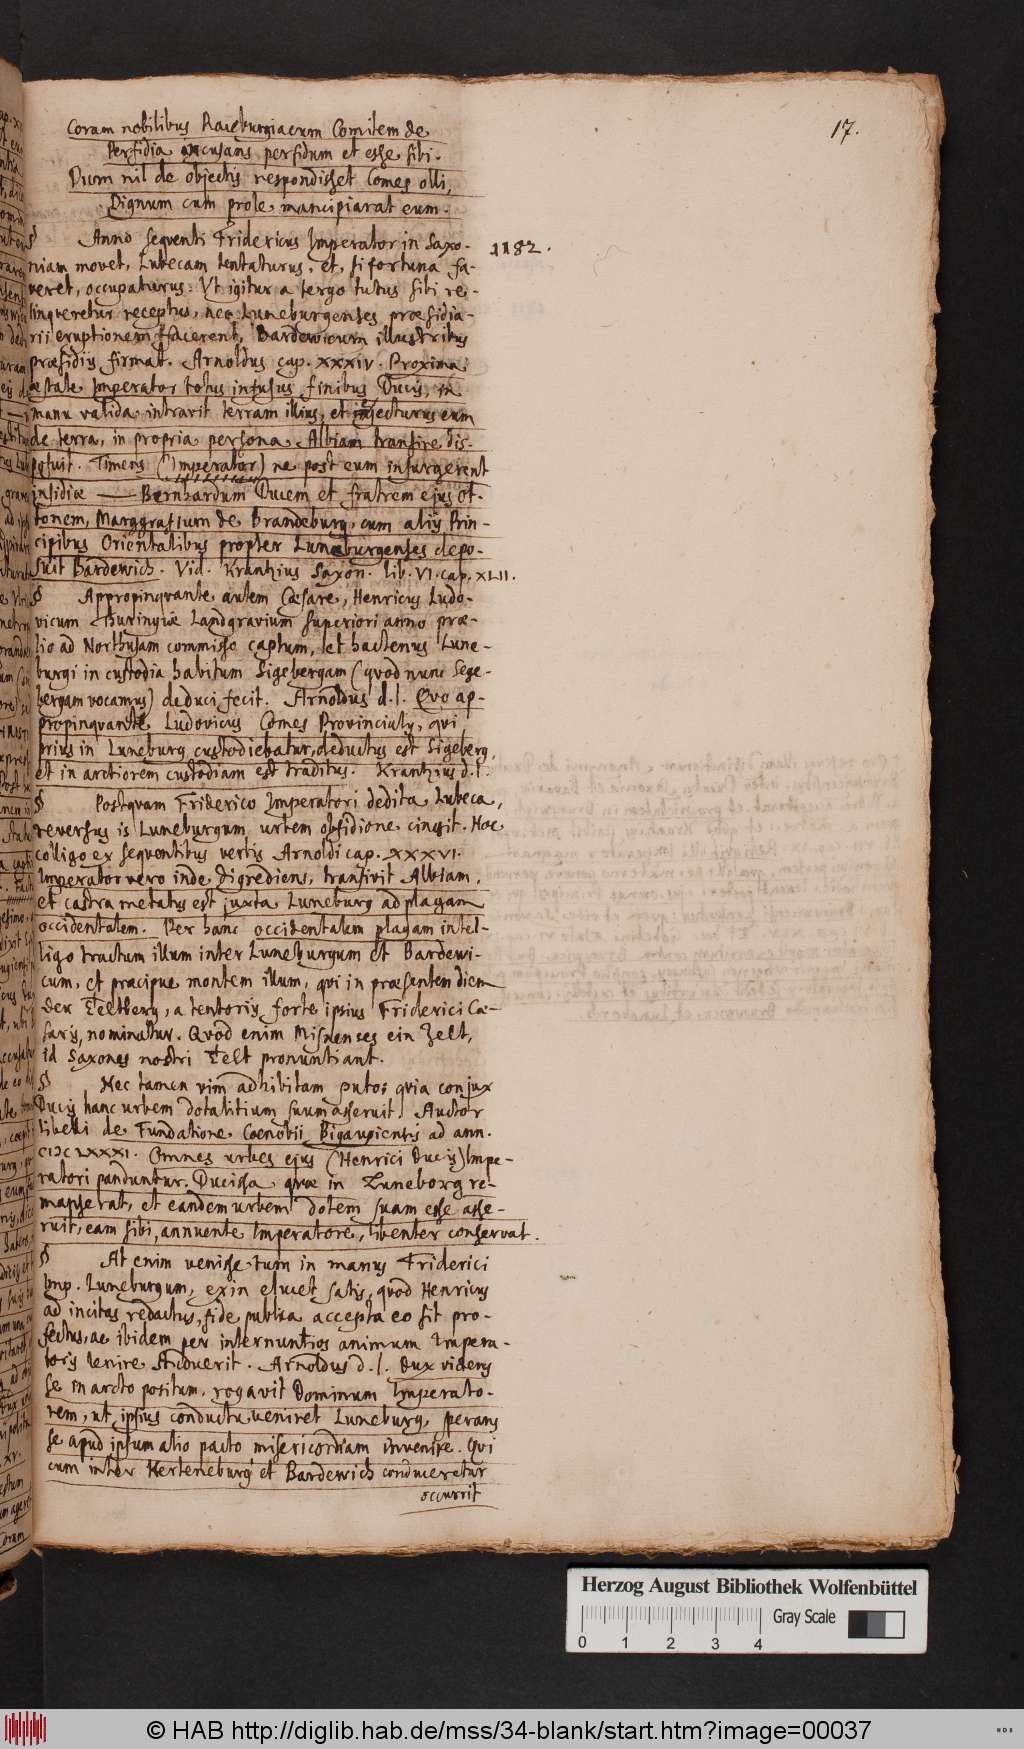 17.
Coram nobilibus Raceburgiacum Comitem de
Perfidia incusans perfidum et esse sibi.
Dum nil de objectis respondisset Comes olli,
Dignum cum prole mancipiarat eum.
§ Anno sequenti Fridericus Imperator in Saxo-
1182.
niam movet, Lubecam tentaturus, et, si fortuna fa-
veret, occupaturus: Ut igitur a tergo tutus sibi re-
linqveretur receptus, nec Luneburgenses præsidia-
rii eruptionem facerent, Bardewicum illustribus
præsidiis firmat. Arnoldus cap. XXXIV. Proxima
æstate Imperator totus infusus finibus Ducis, in
manu valida intravit terram illius, et injecturus eum
de terra, in propria persona Albiam transire dis-
posuit. Timens (Imperator) ne post eum insurgerent
insidiæ — Bernhardum Ducem et fratrem ejus Ot-
tonem, Marggrafium de Brandeburg, cum aliis Prin-
cipibus Orientalibus propter Luneburgenses depo-
suit Bardewich. Vid. Krantzius Saxon. lib. VI. cap. XLII.
§ Appropinqvante autem Cæsare, Henricus Ludo-
vicum Thuringiæ Landgravium superiori anno præ-
lio ad Northusam commisso captum, et hactenus Lune-
burgi in custodia habitum Sigebergam (qvod nunc Sege-
bergam vocamus) deduci fecit. Arnoldus d. l. Qvo ap-
propinqvante Ludovicus Comes Provincialis, qvi
prius in Luneburg custodiebatur, deductus est Sigeberg,
et in arctiorem custodiam est traditus. Krantzius d. l.
§ Postqvam Friderico Imperatori dedita Lubeca,
reversus is Luneburgum urbem obsidione cinxit. Hoc
colligo ex seqventibus verbis Arnoldi cap. XXXVI.
Imperator vero inde digrediens, transivit Albiam,
et castra metatus est juxta Luneburg ad plagam
occidentalem. Per hanc occidentalem plagam intel-
ligo tractum illum inter Luneburgum et Bardewi-
cum, et præcipue montem illum, qvi in præsentem diem
der Teltberg, a tentoriis forte ipsius Friderici Cæ-
saris, nominatur. Qvod enim Misnenses ein Zelt,
id Saxones nostri Telt pronuntiant.
§ Nec tamen vim adhibitam puto: qvia conjux
Ducis hanc urbem dotalitium suum asseruit. Auctor
libelli de Fundatione Coenobii Bigaugiensis ad ann.
CIƆC LXXXI. Omnes urbes ejus (Henrici Ducis) Impe-
ratori panduntur. Ducissa qvæ in Luneborg re-
manserat, et eandem urbem dotem suam esse asse-
ruit, eam sibi, annuente Imperatore, libenter conservat.
§ At enim venisse tum in manus Friderici
Imp. Luneburgum, exin elucet satis, qvod Henricus
ad incitas redactus, fide publica accepta eo sit pro-
fectus, ac ibidem per internuntios animum Impera-
toris lenire studuerit. Arnoldus d. l. Dux videns
se in arcto positum, rogavit Dominum Imperato-
rem, ut ipsius conductu veniret Luneburg, sperans
se apud ipsum alio pacto misericordiam invenire. Qvi
cum inter Herteneburg et Bardewich conduceretur
occurrit
Herzog August Bibliothek Wolfenbüttel
0 1 2 3 4
Gray Scale
© HAB http://diglib.hab.de/mss/34-blank/start.htm?image=00037